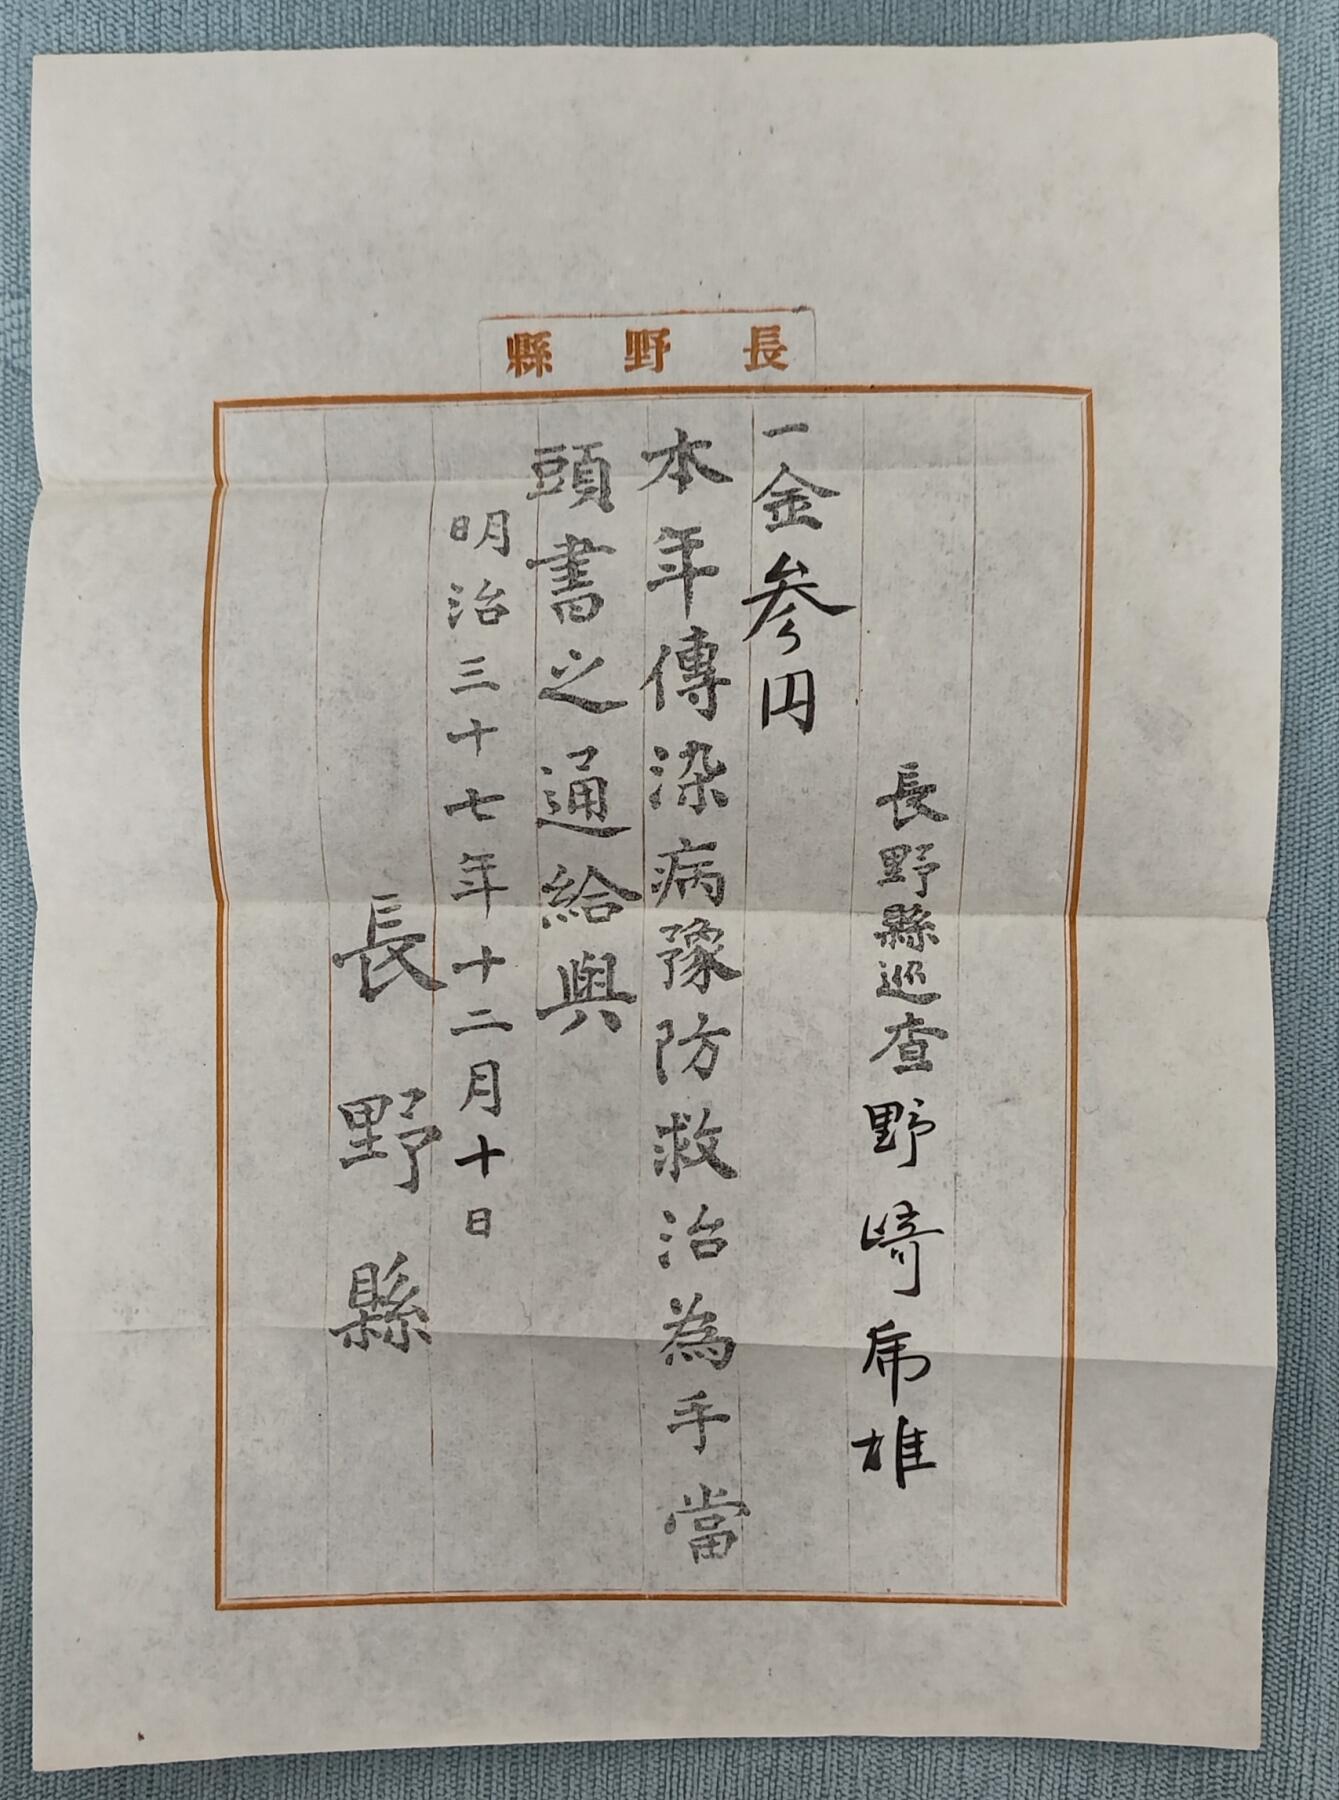 長野縣
長野縣巡査野崎乕雄
一金参円
本年傳染病豫防救治為手當
頭書之通給與
明治三十七年十二月十日
長野縣